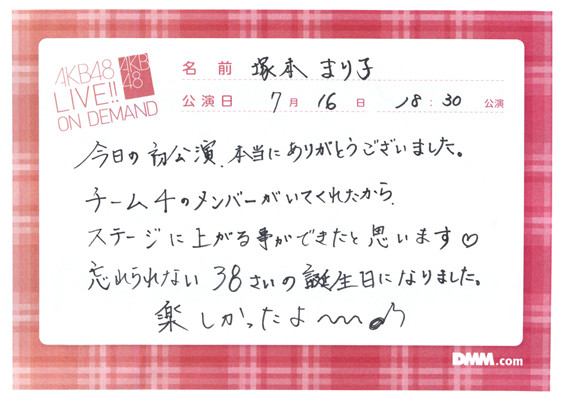 AKB48
LIVE!!
ON DEMAND
AKB
48
名 前 塚本 まり子
公演日 7 月 16 日 18 : 30 公演
今日の初公演、本当にありがとうございました。
チーム4のメンバーがいてくれたから、
ステージに上がる事ができたと思います♡
忘れられない 38さいの誕生日になりました。
楽しかったよ〜〜♪
DMM.com